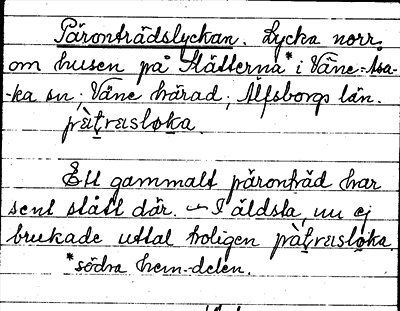 Päronträdslyckan. Lycka norr
om husen på Slätterna* i Väne-Åsa-
-ka sn; Väne härad; Älfsborgs län.
pà̀træsloka.
Ett gammalt päronträd har
sent stått där. — I äldsta, nu ej
brukade uttal troligen pà̀træsloka.
*södra hem-delen.